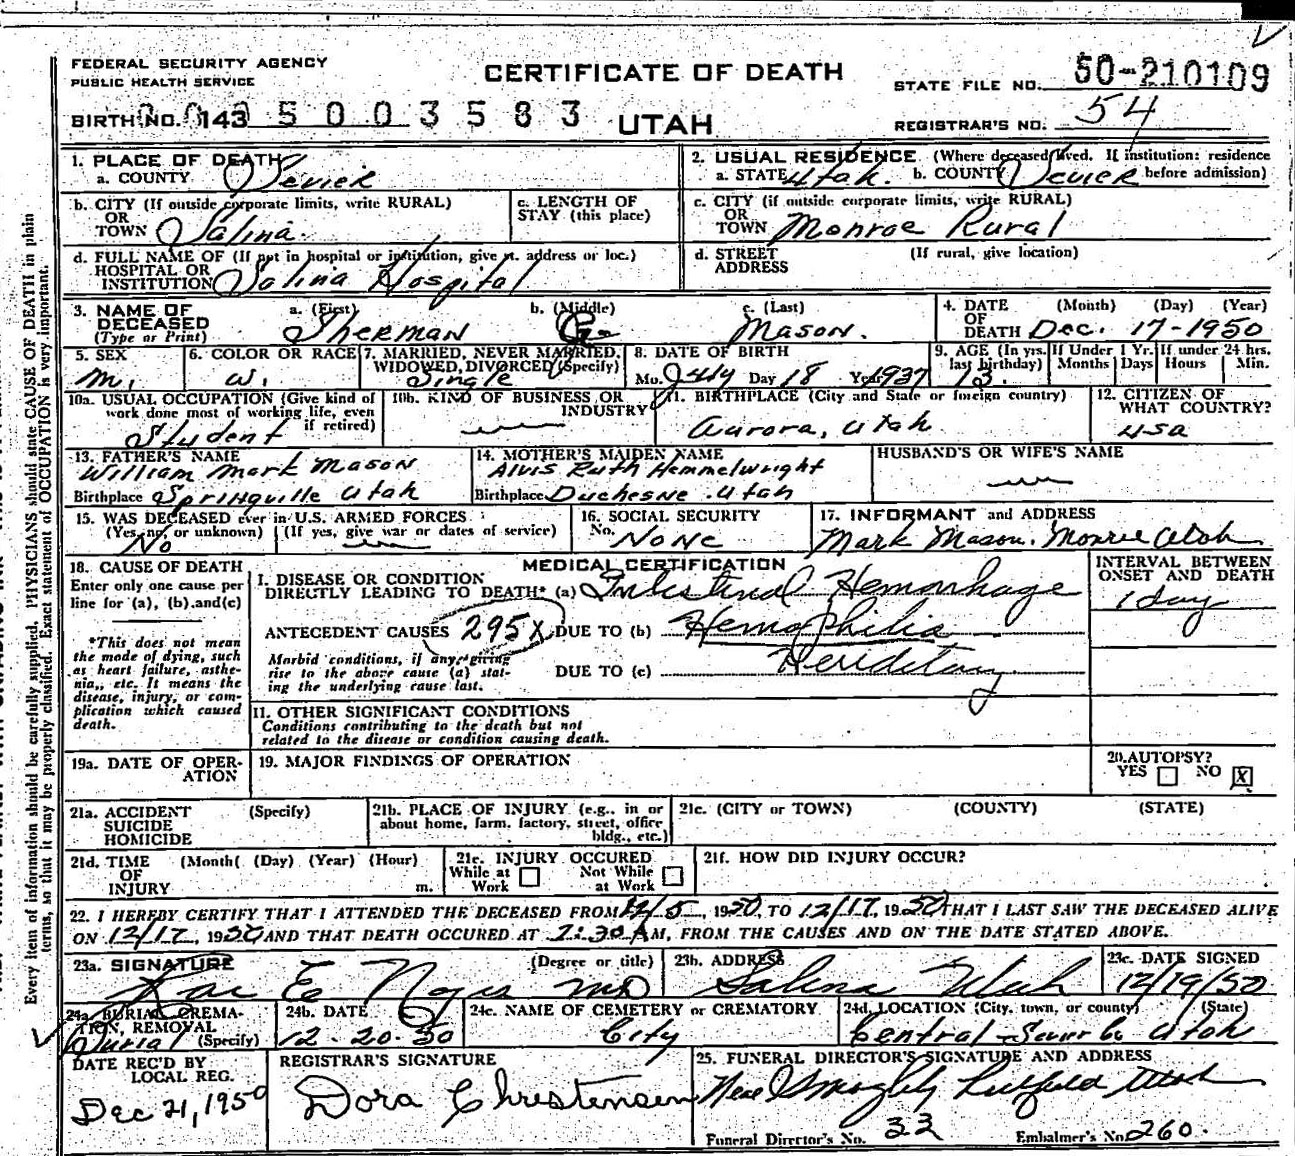 FEDERAL SECURITY AGENCY
PUBLIC HEALTH SERVICE
CERTIFICATE OF DEATH
STATE FILE NO. 50-210109
BIRTH NO. 143 5 0 0 3 5 8 3
UTAH
REGISTRAR'S NO. 54
1. PLACE OF DEATH
a. COUNTY Sevier
2. USUAL RESIDENCE (Where deceased lived. If institution: residence
a. STATE Utah. b. COUNTY Sevier before admission)
b. CITY (If outside corporate limits, write RURAL)
OR
TOWN Salina.
c. LENGTH OF
STAY (this place)
c. CITY (if outside corporate limits, write RURAL)
OR
TOWN Monroe Rural
d. FULL NAME OF (If not in hospital or institution, give st. address or loc.)
HOSPITAL OR
INSTITUTION Salina Hospital
d. STREET (If rural, give location)
ADDRESS
3. NAME OF
DECEASED
(Type or Print)
a. (First) b. (Middle) c. (Last)
Sherman G. Mason.
4. DATE (Month) (Day) (Year)
OF
DEATH Dec. 17-1950
5. SEX
M.
6. COLOR OR RACE
W.
7. MARRIED, NEVER MARRIED,
WIDOWED, DIVORCED (Specify)
Single
8. DATE OF BIRTH
Mo. July Day 18 Yr. 1937
9. AGE (In yrs. last birthday) 13.
If Under 1 Yr. Months Days
If under 24 hrs. Hours Min.
10a. USUAL OCCUPATION (Give kind of
work done most of working life, even
if retired)
Student
10b. KIND OF BUSINESS OR
INDUSTRY
11. BIRTHPLACE (City and State or foreign country)
Aurora, Utah
12. CITIZEN OF
WHAT COUNTRY?
USA
13. FATHER'S NAME
William Mark Mason
Birthplace Springville Utah
14. MOTHER'S MAIDEN NAME
Alvis Ruth Hemmelwright
Birthplace Duchesne Utah
HUSBAND'S OR WIFE'S NAME
15. WAS DECEASED ever in U.S. ARMED FORCES
(Yes, no, or unknown) (If yes, give war or dates of service)
No
16. SOCIAL SECURITY
No. None
17. INFORMANT and ADDRESS
Mark Mason. Monroe Utah
18. CAUSE OF DEATH
Enter only one cause per
line for (a), (b) and (c)
*This does not mean
the mode of dying, such
as heart failure, asthe-
nia, etc. It means the
disease, injury, or com-
plication which caused
death.
MEDICAL CERTIFICATION
I. DISEASE OR CONDITION
DIRECTLY LEADING TO DEATH* (a) Intestinal Hemorrhage
ANTECEDENT CAUSES 295X DUE TO (b) Hemophilia
Morbid conditions, if any, giving
rise to the above cause (a) stat-
ing the underlying cause last.
DUE TO (c) Hereditary
11. OTHER SIGNIFICANT CONDITIONS
Conditions contributing to the death but not
related to the disease or condition causing death.
INTERVAL BETWEEN
ONSET AND DEATH
1 day
19a. DATE OF OPER-
ATION
19. MAJOR FINDINGS OF OPERATION
20. AUTOPSY?
YES NO X
21a. ACCIDENT (Specify)
SUICIDE
HOMICIDE
21b. PLACE OF INJURY (e.g., in or
about home, farm, factory, street, office
bldg., etc.)
21c. (CITY or TOWN) (COUNTY) (STATE)
21d. TIME (Month) (Day) (Year) (Hour)
OF
INJURY m.
21e. INJURY OCCURED
While at Work Not While at Work
21f. HOW DID INJURY OCCUR?
22. I HEREBY CERTIFY THAT I ATTENDED THE DECEASED FROM 12/5, 1950, TO 12/17, 1950 THAT I LAST SAW THE DECEASED ALIVE
ON 12/17, 1950 AND THAT DEATH OCCURED AT 7:30 AM, FROM THE CAUSES AND ON THE DATE STATED ABOVE.
23a. SIGNATURE (Degree or title)
Rae E Noyes MD
23b. ADDRESS
Salina Utah
23c. DATE SIGNED
12/19/50
24a. BURIAL, CREMA-
TION, REMOVAL
(Specify) Burial
24b. DATE
12-20-50
24c. NAME OF CEMETERY or CREMATORY
City
24d. LOCATION (City, town, or county) (State)
Central - Sevier Co Utah
DATE REC'D BY
LOCAL REG.
Dec 21, 1950
REGISTRAR'S SIGNATURE
Dora Christensen
25. FUNERAL DIRECTOR'S SIGNATURE AND ADDRESS
Utah
Funeral Director's No. 33 Embalmer's No. 260.
Every item of information should be carefully supplied. PHYSICIANS should state CAUSE OF DEATH in plain
terms, so that it may be properly classified. Exact statement of OCCUPATION is very important.